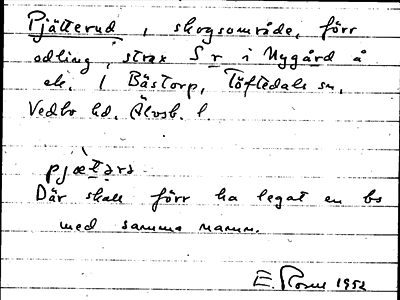 Pjätterud, skogsområde, förr
odling, strax S r i Nygård å
ek. 1 Bästorp, Töftedals sn,
Vedbo hd. Älvsb. l.
Där skall förr ha legat en bs
med samma namn.
E. 1952